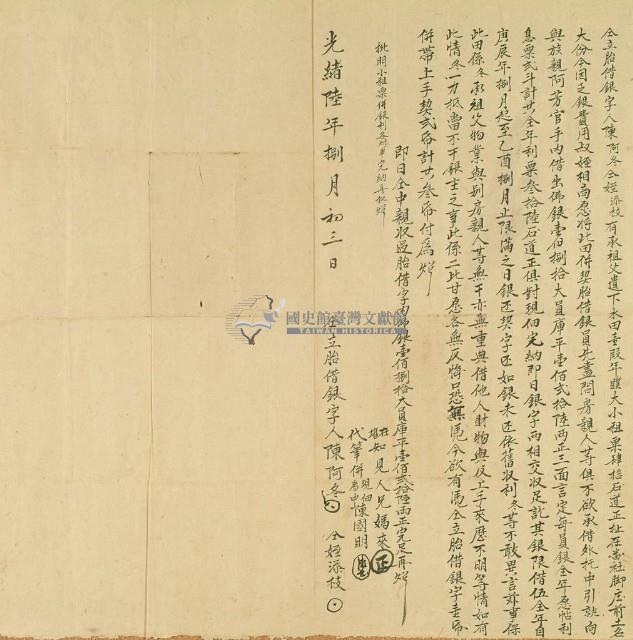 仝立胎借銀字人陳阿冬仝姪添枝有承祖父遺下水田壹段年贌大小租粟肆拾石道正址在蔴社腳庄前土名
大份今因乏銀費用叔姪相商愿將此田併契胎借銀員先盡問房親人等俱不欲承借外托中引就向
與族親阿芳官手內借出佛銀壹佰捌拾大員庫平壹佰貳拾陸両正三面言定每員銀全年愿帖利
息粟貳斗計共全年利粟叁拾陸石道正俱對現佃完納即日銀字両相交收足訖其銀限借伍全年自
庚辰年捌月起至乙酉捌月止限滿之日銀还契字还如銀未还依舊收利冬等不敢異言訝事保
此田係冬承祖父物業與別房親人等無干亦無重典借他人財物與及上手來歷不明等情如有
此情冬一力抵當不干銀主之事此係二比甘愿各無反悔口恐無凴今欲有凴仝立胎借銀字壹帋
併帶上手契貳帋計共叁帋付為炤
即日仝中親收過胎借字內佛銀壹佰捌拾大員庫平壹佰貳拾陸両正完足再炤
批明小租粟併銀利各完納再批炤
在場知見人兄媽來
代筆併為中現佃陳國明
光緒陸年捌月初三日
仝立胎借銀字人陳阿冬
仝姪添枝
國史館臺灣文獻館
TAIWAN HISTORICA